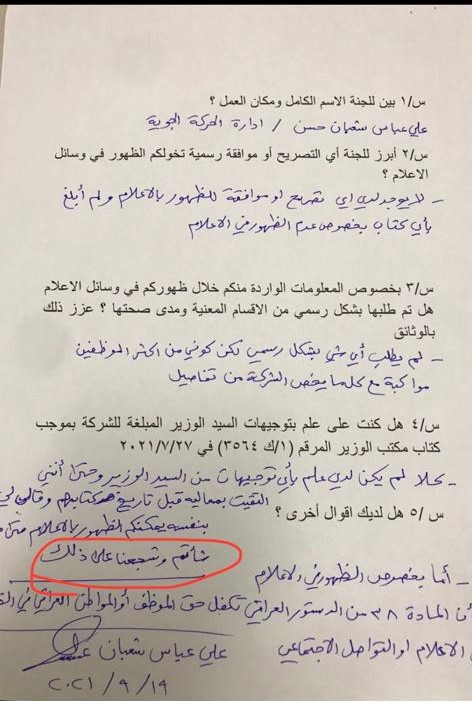 س/١ بين للجنة الاسم الكامل ومكان العمل ؟
علي عباس شعبان حسن / ادارة الحركة الجوية
س/٢ أبرز للجنة أي التصريح أو موافقة رسمية تخولكم الظهور في وسائل
الاعلام ؟
- لا يوجد لدي اي تصريح او موافقة للظهور بالاعلام ولم أبلغ
بأي كتاب بخصوص عدم الظهور في الاعلام
س/٣ بخصوص المعلومات الواردة منكم خلال ظهوركم في وسائل الاعلام
هل تم طلبها بشكل رسمي من الاقسام المعنية ومدى صحتها ؟ عزز ذلك
بالوثائق
- لم يطلب أي شي بشكل رسمي لكن كوني من اكثر الموظفين
مواكبة مع كلما يخص الشركة من تفاصيل
س/٤ هل كنت على علم بتوجيهات السيد الوزير المبلغة للشركة بموجب
كتاب مكتب الوزير المرقم (١/ك ٣٥٦٤) في ٢٠٢١/٧/٢٧
- كلا لم يكن لدي علم بأي توجيهات من السيد الوزير وحتى أنني
التقيت بمعاليه قبل تاريخ هذا وقال لي
س/٥ هل لديك اقوال أخرى ؟
بنفسه يمكنكم الظهور بالاعلام متى ما
شائتم وشجعنا على ذلك
- أما بخصوص الظهور في الاعلام
أن المادة ٣٨ من الدستور العراقي تكفل حق الموظف أو المواطن العراقي في
الاعلام او التواصل الاجتماعي
علي عباس شعبان
٢٠٢١/٩/١٩